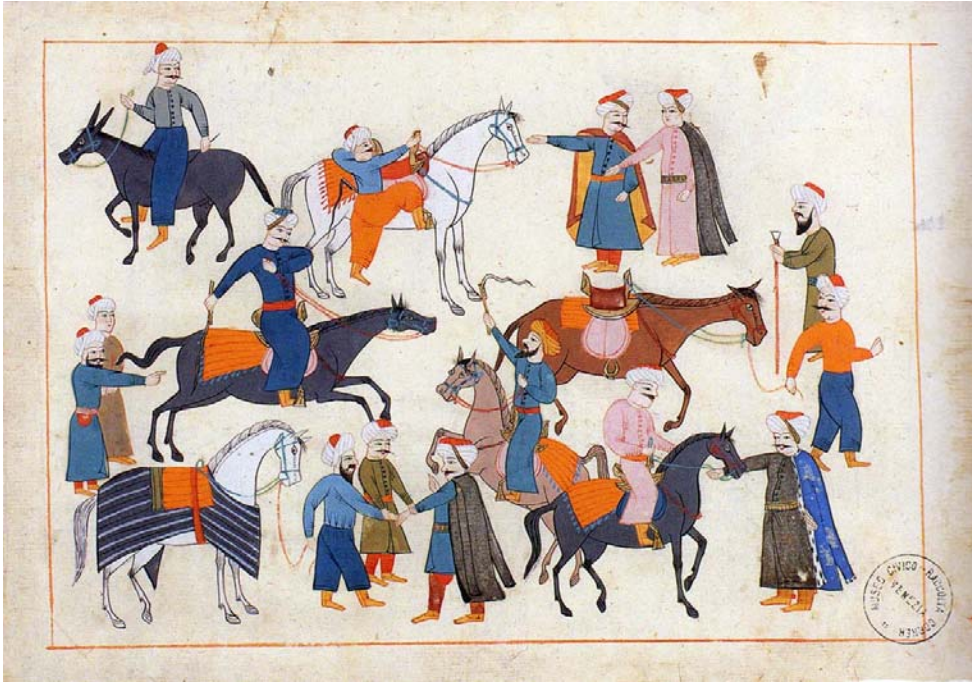 MUSEO CIVICO - RACCOLTA CORRER
VENEZIA